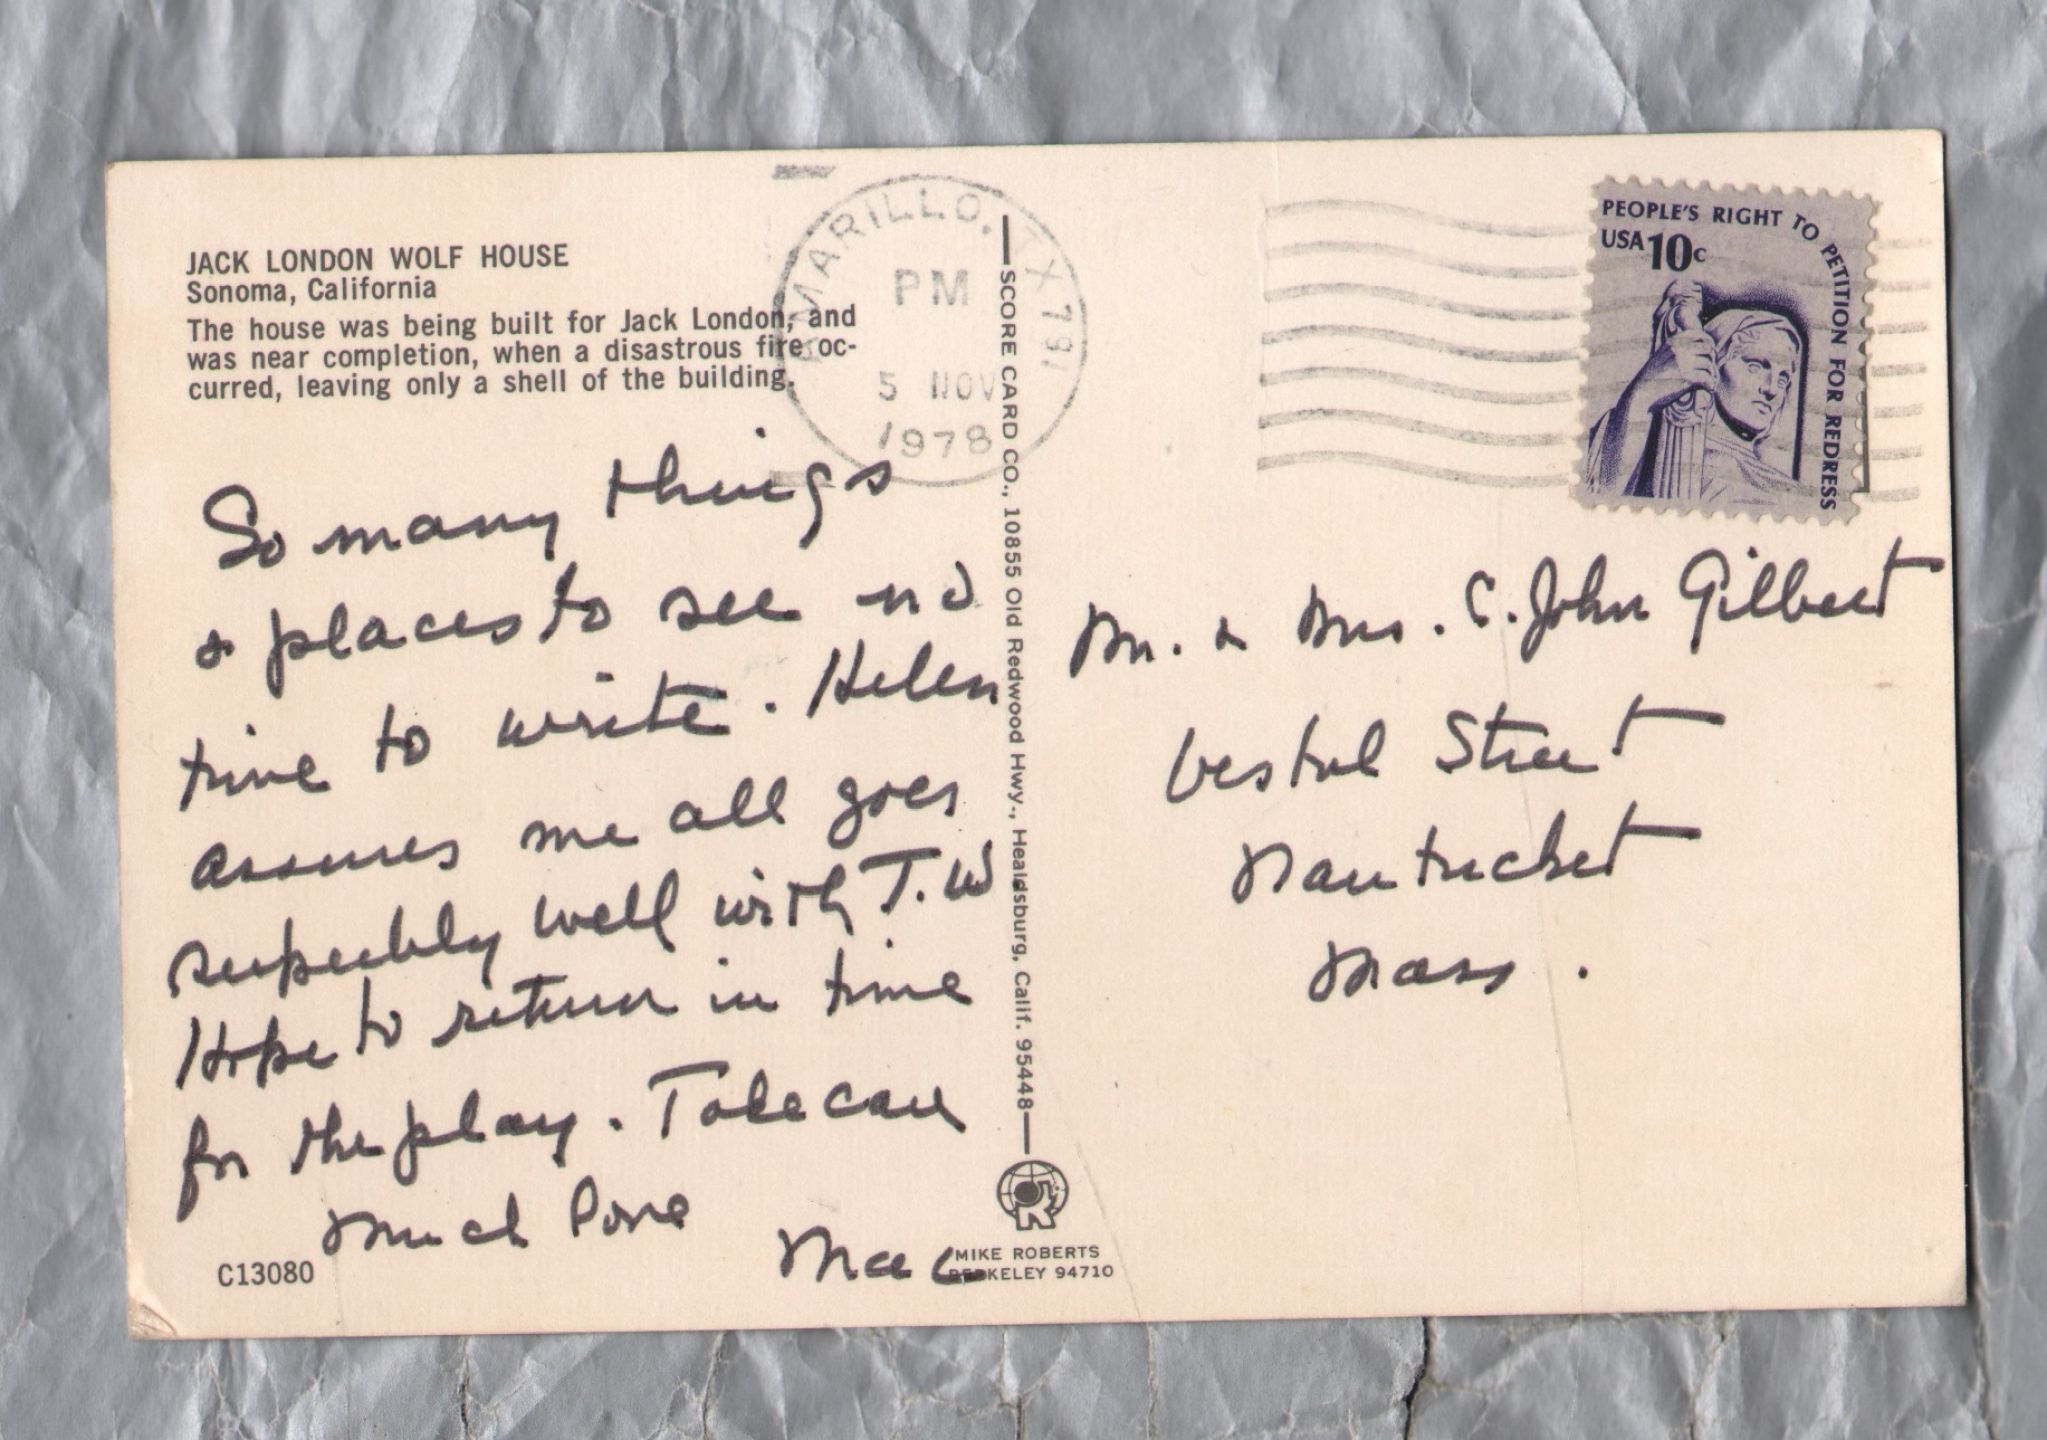 JACK LONDON WOLF HOUSE
Sonoma, California
The house was being built for Jack London, and
was near completion, when a disastrous fire oc-
curred, leaving only a shell of the building.
So many things
& places to see no
time to write. Helen
assures me all goes
superbly well with T.W
Hope to return in time
for the play. Take care
Much Love
Mac
C13080
AMARILLO, TX 791
PM
5 NOV
1978
SCORE CARD CO., 10855 Old Redwood Hwy., Healdsburg, Calif. 95448
MIKE ROBERTS
BERKELEY 94710
PEOPLE'S RIGHT TO PETITION FOR REDRESS
USA 10c
Mr. & Mrs. C. John Gilbert
Vestal Street
Nantucket
Mass.